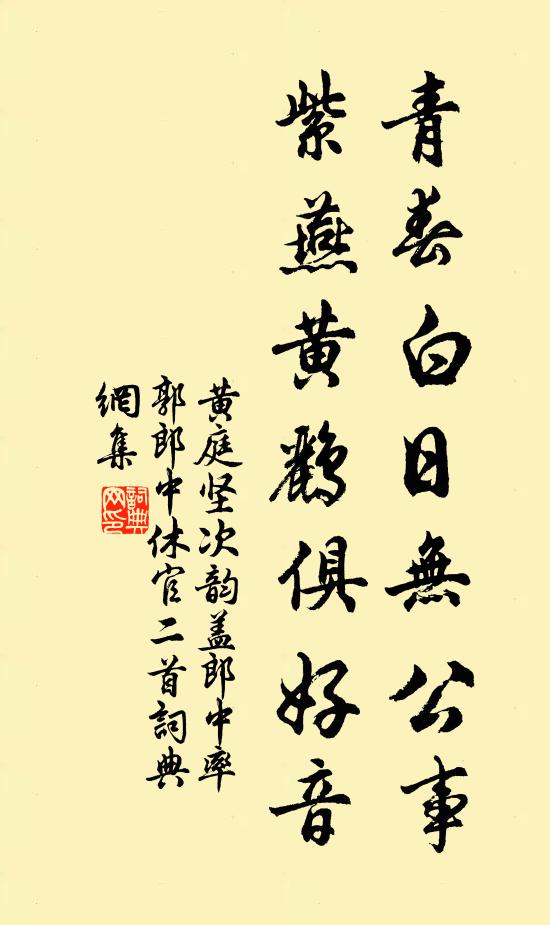 青春白日無公事
紫燕黃鸝俱好音
黄庭坚次韵盖郎中率
郭郎中休官二首詞典
網集
詞典
网印